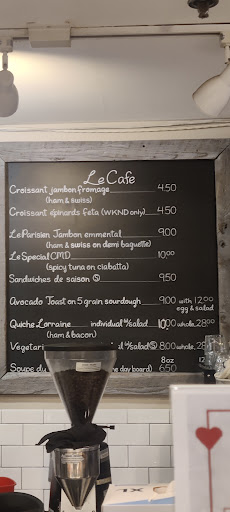 Le Cafe
Croissant jambon fromage 4.50
(ham & swiss)
Croissant épinards feta (WKND only) 4.50
Le Parisien Jambon emmental 9.00
(ham & swiss on demi baguette)
Le Special CMD 10.00
(spicy tuna on ciabatta)
Sandwiches de saison 9.50
Avocado Toast on 5 grain sourdough 9.00 with 12.00
egg & salad
Quiche Lorraine individual w/salad 10.00 whole 28.00
(ham & bacon)
w/salad 8.00 whole 28.00
8oz
Soupe du day board) 6.50